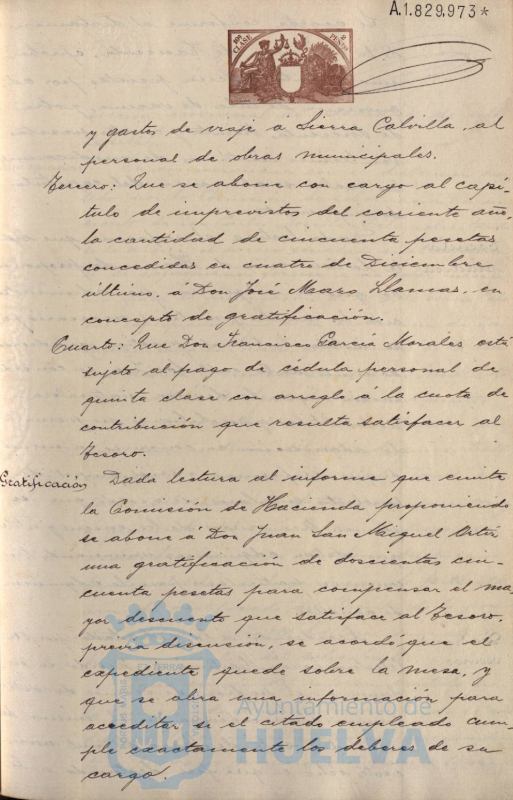 A.1.829,973*
CLASE
PESETAS
y gastos de viaje á Sierra Calvilla, al
personal de obras municipales.
Tercero: Que se abone con cargo al capí-
tulo de imprevistos del corriente año,
la cantidad de cincuenta pesetas
concedidas en cuatro de Diciembre
último, á Don José Mazo Llamas, en
concepto de gratificación.
Cuarto: Que Don Francisco García Morales está
sujeto al pago de cédula personal de
quinta clase con arreglo á la cuota de
contribución que resulta satisfacer al
Tesoro.
Gratificación Dada lectura al informe que emite
la Comisión de Hacienda proponiendo
se abone á Don Juan San Miguel Ortiz
una gratificación de doscientas cin-
cuenta pesetas para compensar el ma-
yor descuento que satisface al Tesoro,
previa discusión, se acordó que el
expediente quede sobre la mesa, y
que se abra una información para
acreditar si el citado empleado cum-
ple exactamente los deberes de su
cargo.
Ayuntamiento de
HUELVA